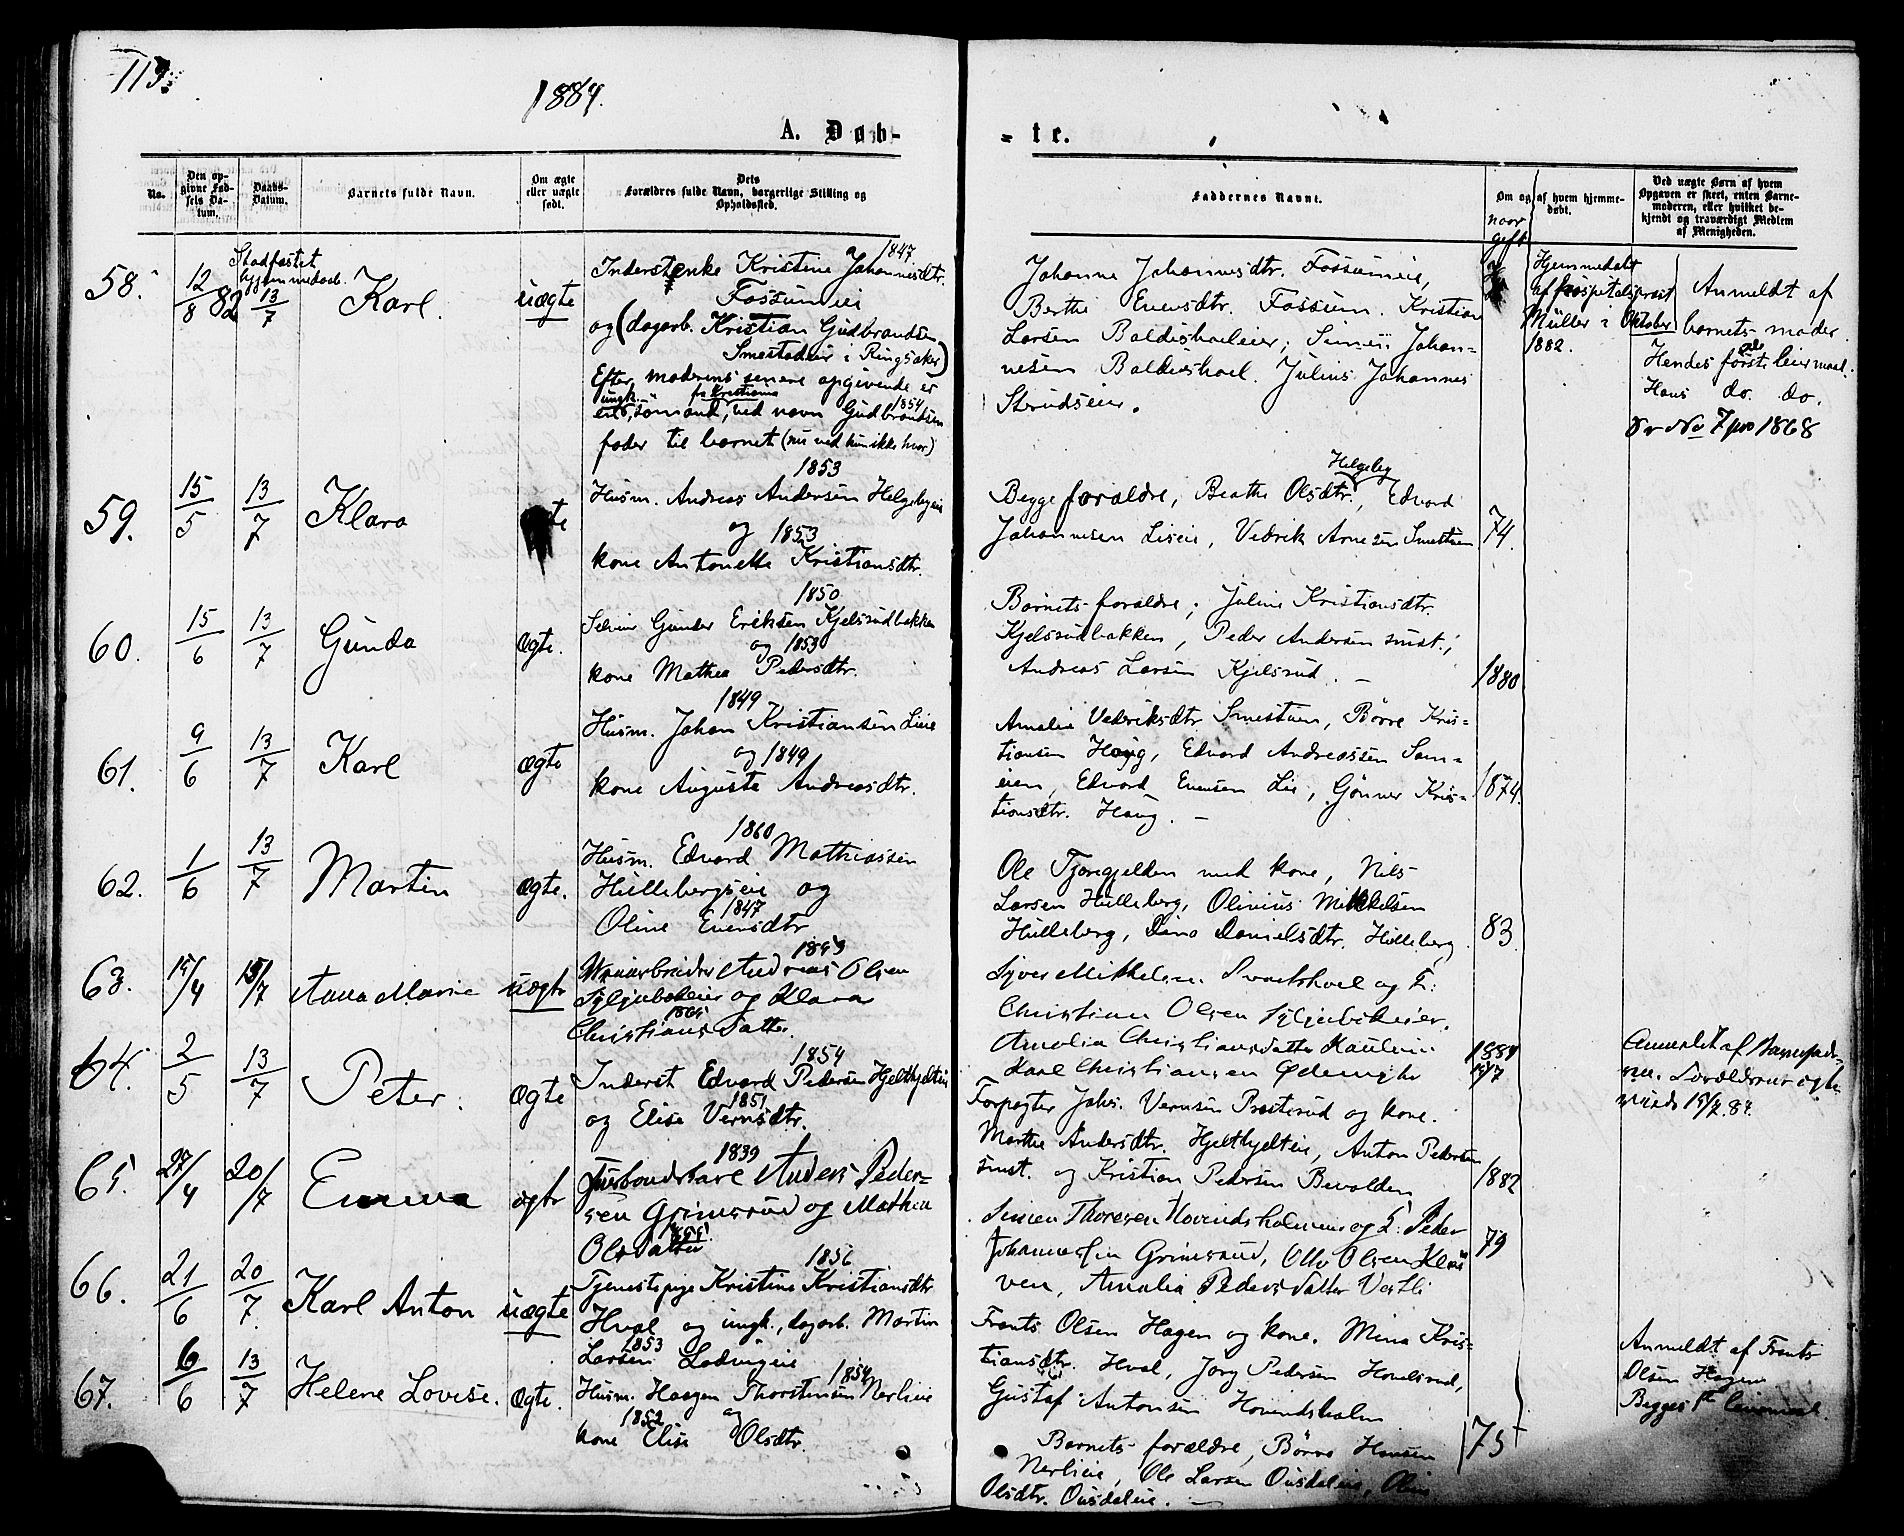 113.
1884.
A. Døb-
= te.
No.
Den op-
givne Fød-
sels Da-
tum.
Daabs-
Datum.
Barnets fulde Navn.
Om ægte
eller uægte
født.
Dets
Forældres fulde Navn, borgerlige Stilling og
Opholdssted.
Faddernes Navne.
naar
gift
Om og af hvem hjemme-
døbt.
Ved uægte Børn af hvem
Opgaven er skeet, enten Barne-
moderen, eller hvilket be-
kjendt og troværdigt Medlem
af Menigheden.
58.
12/8 82
Stadfæstet
hjemmedaab
13/7
Karl.
uægte
1847
Inderstenke Kristine Johannesdtr.
Fossumeie
og (dagarb. Kristian Gudbrandsen
Smestadeie i Ringsaker)
Efter moderens senere opgivende er
ungk. fr Kristiania 1854
en sømand, ved navn Gudbrandsen
fader til barnet (nu ved hun ikke hvor)
Johanne Johannesdtr. Fossumeie,
Berthe Evensdtr. Fossum. Kristian
Larsen Baldishoeleier, Simen Johan-
nesen Baldishoel. Julius Johannes
Sterudseie.
Hjemmedøbt
af hospitalsprest
Müller i Oktober
1882.
Anmeldt af
barnets moder.
Hendes første leiermaal.
Hans do. do.
Sr No 7 pro 1868
59.
15/5
13/7
Klara
1853
Husm. Andreas Andersen Helgebyeie
og 1853
kone Antonette Kristiansdtr.
Helgeby
Begge forældre, Beathe Olsdtr., Edvard
Johannesen Lieeie, Vedrik Arnesen Smestuen
74.
60.
15/6
13/7
Gunda
Ægte.
1850
Selveier Gunder Eriksen Kjelsrudbakken
og 1853
kone Mathea Pedersdtr.
Barnets forældre, Juline Kristiansdtr.
Kjelsrudbakken, Peder Andersen smst.,
Andreas Larsen Kjelsrud. –
1880
61.
9/6
13/7
Karl
ægte
1849
Husm. Johan Kristiansen Lieie
og 1849
kone Auguste Andreasdtr.
Amalie Vedriksdtr Smestuen, Børre Kris-
tiansen Haug, Edvard Andreassen Sam-
eien, Edvard Evensen Lie, Gønner Kris-
tiansdtr. Haug. –
1874.
62.
1/6
13/7
Martin
ægte.
1860
Husm. Edvard Mathiassen
Hullebergseie og
1847
Oline Evensdtr
Ole Tjoregjelden med kone, Nils
Larsen Hulleberg, Olinius Mikkelsen
Hulleberg, Dina Danielsdtr. Hulleberg
83
63.
15/4
15/7
Anna Marie
uægte
1859
Andreas Olsen
Syljubækeie og Klara
Christiansdatter
Syver Mikkelsen Svartshoel og k:
Christian Olsen Syljubækeier.
Amalia Christiansdatter Haugeie
Karl Christiansen Ødemoht
1884
15/7
Anmeldt af Barnefade-
ren. Forældrene ægte
viede 15/7. 84.
64.
2/5
13/7
Peter.
Ægte
1854
Inderst Edvard Pedersen Hjelthjelteie
1851
og Elise Vernsdtr.
Forpagter Johs. Vernsen Prestrud og kone.
Marthe Andersdtr. Hjelthjelteie, Anton Pedersen
smst. og Kristian Pedersen Bevolden
1882
65.
27/4
20/7
Emma
ægte
1839
Anders Peder-
sen Grimsrud og Mathea
Olsdatter
Simen Thoresen Hovindsholmeie og k: Peder
Johannessen Grimsrud, Otto Olsen Klø-
ven, Amalia Pedersdatter Vestli
79
66.
21/6
20/7.
Karl Anton
uægte
1856
Tjenestepige Kristine Kristiansdtr
Hval og ungk., dagarb. Martin
1853
Larsen Lodvigeie
Frants Olsen Hagen og kone. Mina Kris-
tiansdtr. Hval, Jørg Pedersen Honelsrud,
Gustaf Antonsen Hovindsholm
Anmeldt af Frants
Olsen Hagen
Begges 1ste leiermaal.
67.
6/6
13/7
Helene Lovise.
Ægte.
1854
Husm. Haagen Thorstensen Nerlieie
1852 og
kone Elise Olsdtr.
Barnets forældre, Børre Hansen
Nerlieie, Ole Larsen Ousdaleie, Oline
Olsdtr. Ousdaleie. –
75